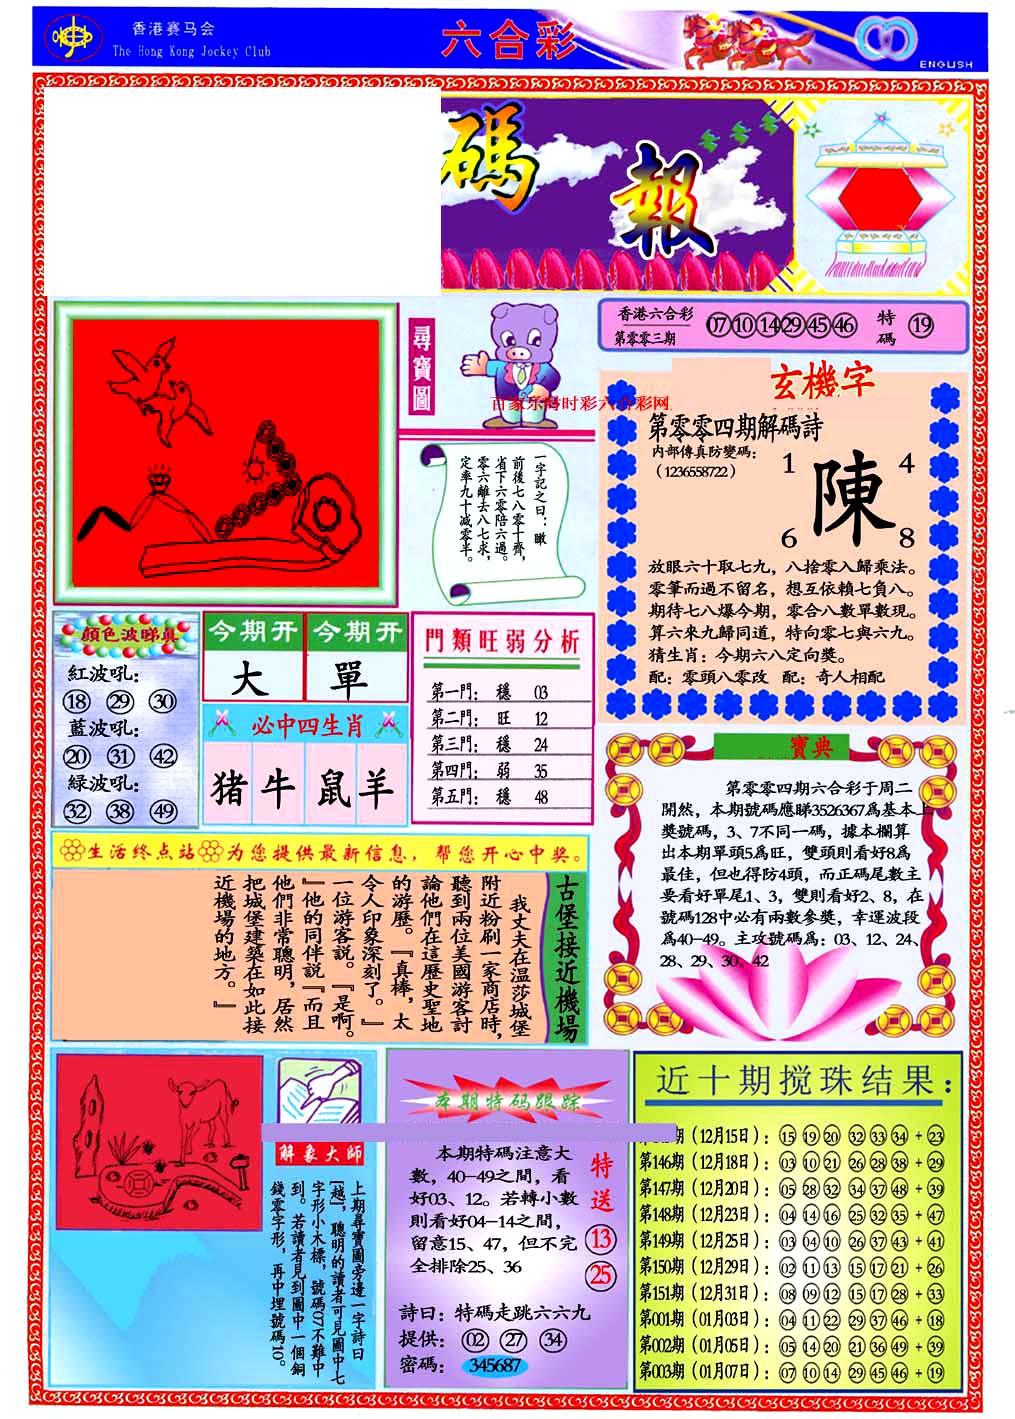 香港赛马会
The Hong Kong Jockey Club
六合彩
ENGLISH
碼報
尋寶圖
香港六合彩
第零零三期
07 10 14 29 45 46 特碼 19
玄機字
第零零四期解碼詩
内部傳真防變碼：
（1236558722）
1 4
陳
6 8
放眼六十取七九，八捨零入歸乘法。
零筆而過不留名，想互依賴七負八。
期待七八爆今期，零合八數單數現。
算六來九歸同道，特向零七與六九。
猜生肖：今期六八定向獎。
配：零頭八零改 配：奇人相配
一字記之曰：瞰
前後七八零十齊，
省下六零陪六過。
零六離去八七求，
定率九十減零半。
顏色波睇真
紅波吼：
18 29 30
藍波吼：
20 31 42
緑波吼：
32 38 49
今期开 今期开
大 單
必中四生肖
猪 牛 鼠 羊
門類旺弱分析
第一門： 穩 03
第二門： 旺 12
第三門： 穩 24
第四門： 弱 35
第五門： 穩 48
寶典
第零零四期六合彩于周二
開然，本期號碼應睇3526367爲基本上
獎號碼，3、7不同一碼，據本欄算
出本期單頭5爲旺，雙頭則看好8爲
最佳，但也得防4頭，而正碼尾數主
要看好單尾1、3，雙則看好2、8，在
號碼128中必有兩數參獎，幸運波段
爲40-49。主攻號碼爲：03、12、24、
28、29、30、42
生活终点站 为您提供最新信息，帮您开心中奖。
古堡接近機場
我丈夫在温莎城堡
附近粉刷一家商店時，
聽到兩位美國游客討
論他們在這歷史聖地
的游歷。『真棒，太
令人印象深刻了。』
一位游客説。『是啊。
』他的同伴説『而且
他們非常聰明，居然
把城堡建築在如此接
近機場的地方。』
解象大師
上期尋寶圖旁邊一字詩曰
[越]，聰明的讀者可見圖中七
字形小木標，號碼07不難中
到。若讀者見到圖中一個銅
錢零字形，再中埋號碼10。
本期特码跟踪
本期特碼注意大
數，40-49之間，看
好03、12。若轉小數
則看好04-14之間，
留意15、47，但不完
全排除25、36
特送
13
25
詩曰：特碼走跳六六九
提供：02 27 34
密碼：345687
近十期搅珠结果：
期（12月15日）：15 19 20 32 33 34 + 23
第146期（12月18日）：03 10 21 26 28 38 + 29
第147期（12月20日）：05 28 32 34 37 48 + 39
第148期（12月23日）：04 14 16 25 32 35 + 47
第149期（12月25日）：03 04 10 26 37 43 + 41
第150期（12月29日）：02 11 13 15 17 21 + 26
第151期（12月31日）：08 09 12 15 17 28 + 33
第001期（01月03日）：04 11 22 29 37 46 + 18
第002期（01月05日）：05 14 20 21 36 49 + 39
第003期（01月07日）：07 10 14 29 45 46 + 19